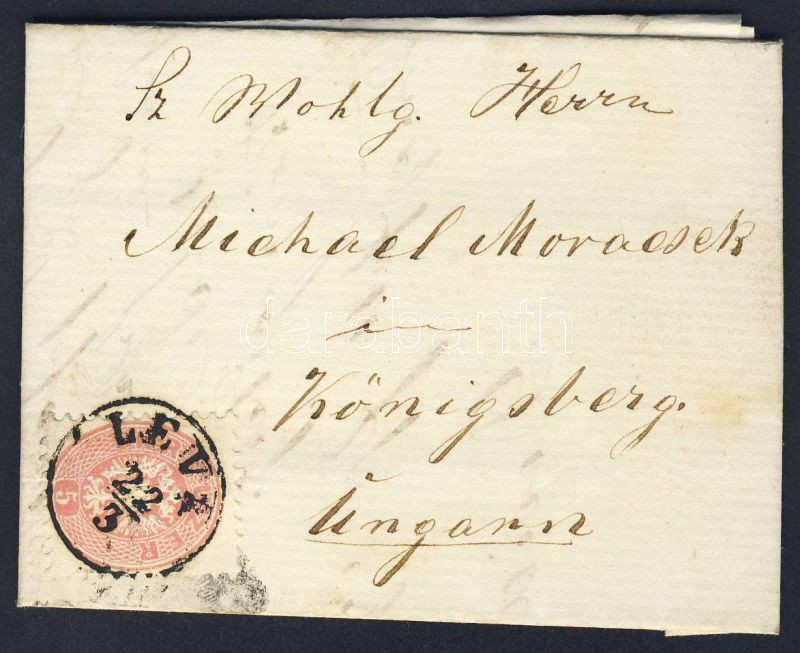 Sr Wohlg. Herrn
Michael Moracsek
in
darabanth
Königsberg.
Ungarn
LEVA
22
3
5